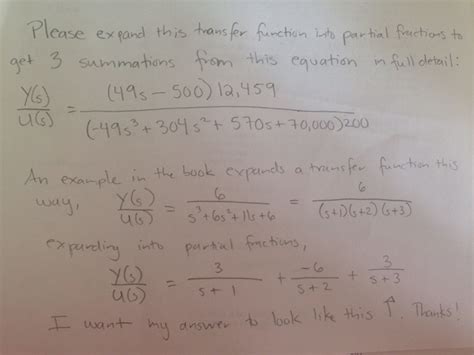 Please expand this transfer function into partial fractions to
get 3 summations from this equation in full detail:
Y(s)/U(s) = (49s - 500) 12,459 / (-49s³ + 304s² + 570s + 70,000) 200
An example in the book expands a transfer function this
way, Y(s)/U(s) = 6 / s³+6s²+11s+6 = 6 / (s+1)(s+2)(s+3)
expanding into partial fractions,
Y(s)/U(s) = 3 / s+1 + -6 / s+2 + 3 / s+3
I want my answer to look like this ↑. Thanks!